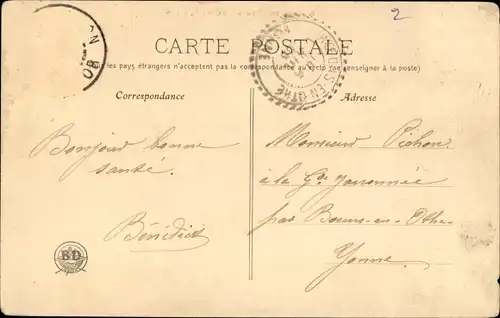 2
CARTE POSTALE
les pays étrangers n'acceptent pas la correspondance au recto (se renseigner à la poste)
Correspondance
Adresse
EN OTHE
Bonjour bonne
santé.
Bénédict
Monsieur Pichon
à la Gde
par Boeurs-en-Othe
Yonne
BD